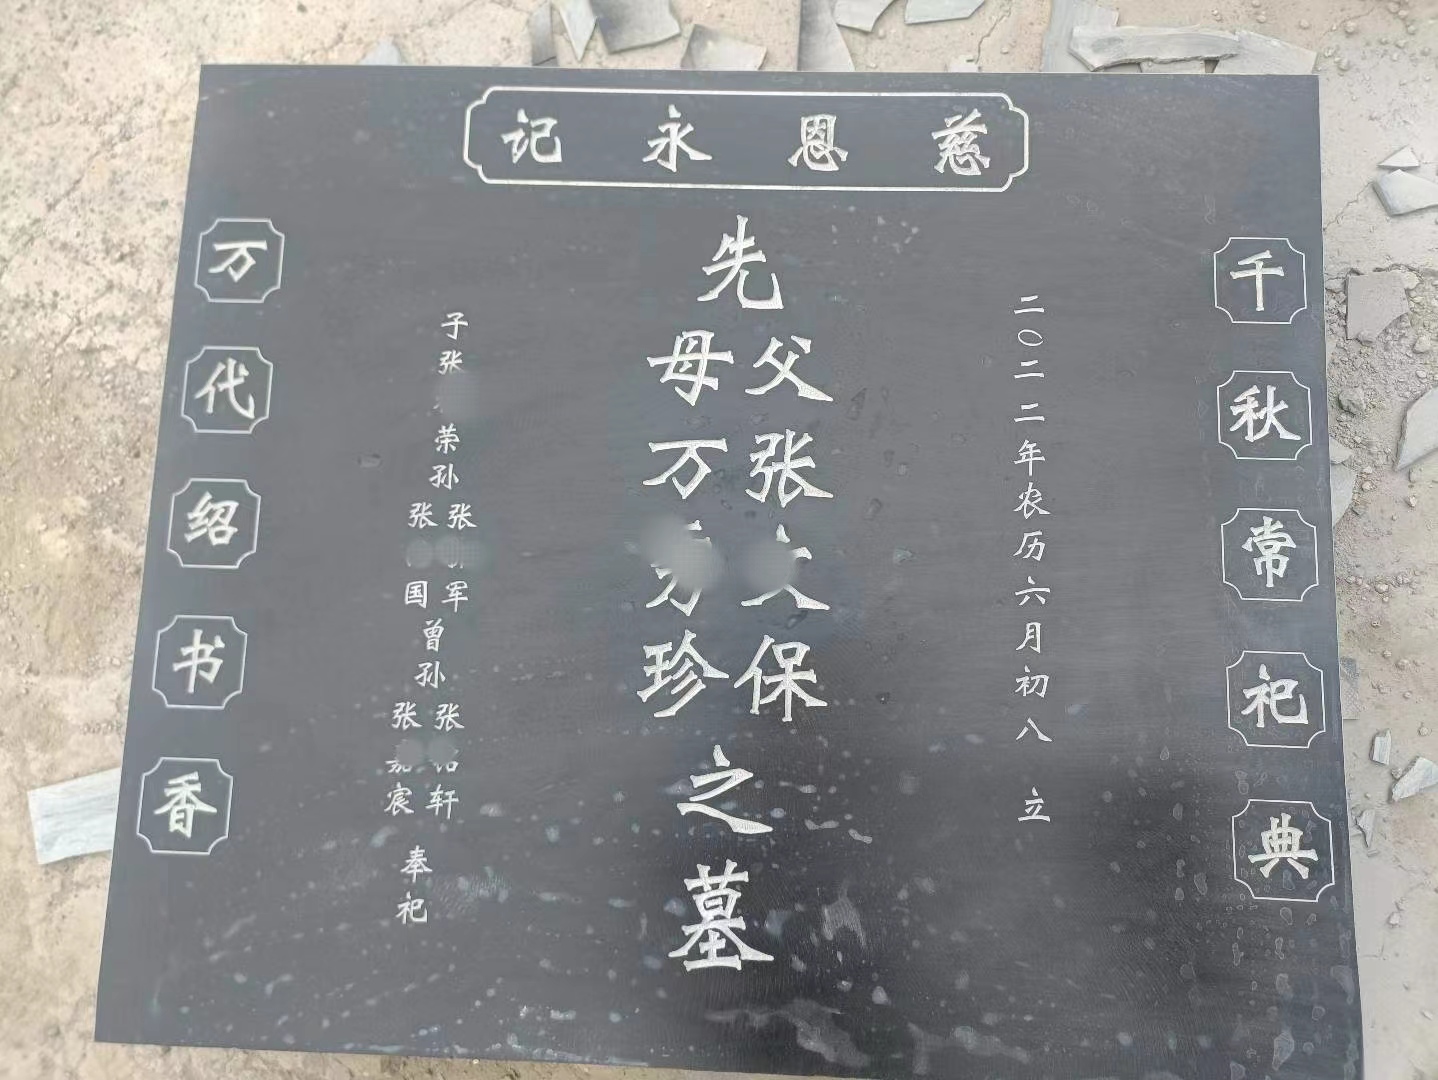 慈恩永记
千秋常祀典
二〇二二年农历六月初八 立
先
父张文保
母万芳珍
之墓
子张荣孙
张军
张国
曾孙
张轩
张宸
奉祀
万代绍书香